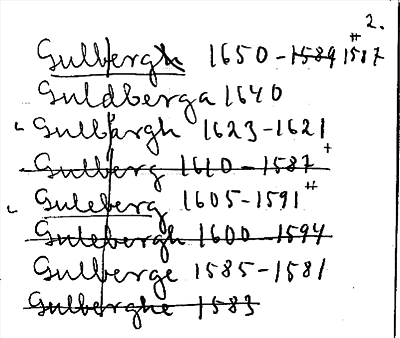 2.
Gulbergh 1650-1589 1587
Guldberga 1640
Gulbargh 1623-1621
Gulberg 1610-1587
Guleberg 1605-1591
Gulebergh 1600-1594
Gulberge 1585-1581
Gulberghe 1583